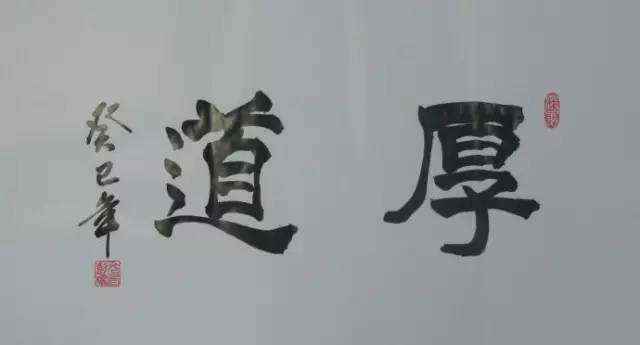 厚道
癸巳年